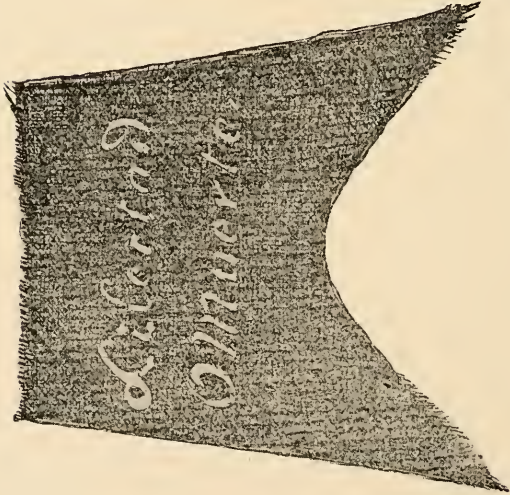 Libertad
O Muerte.